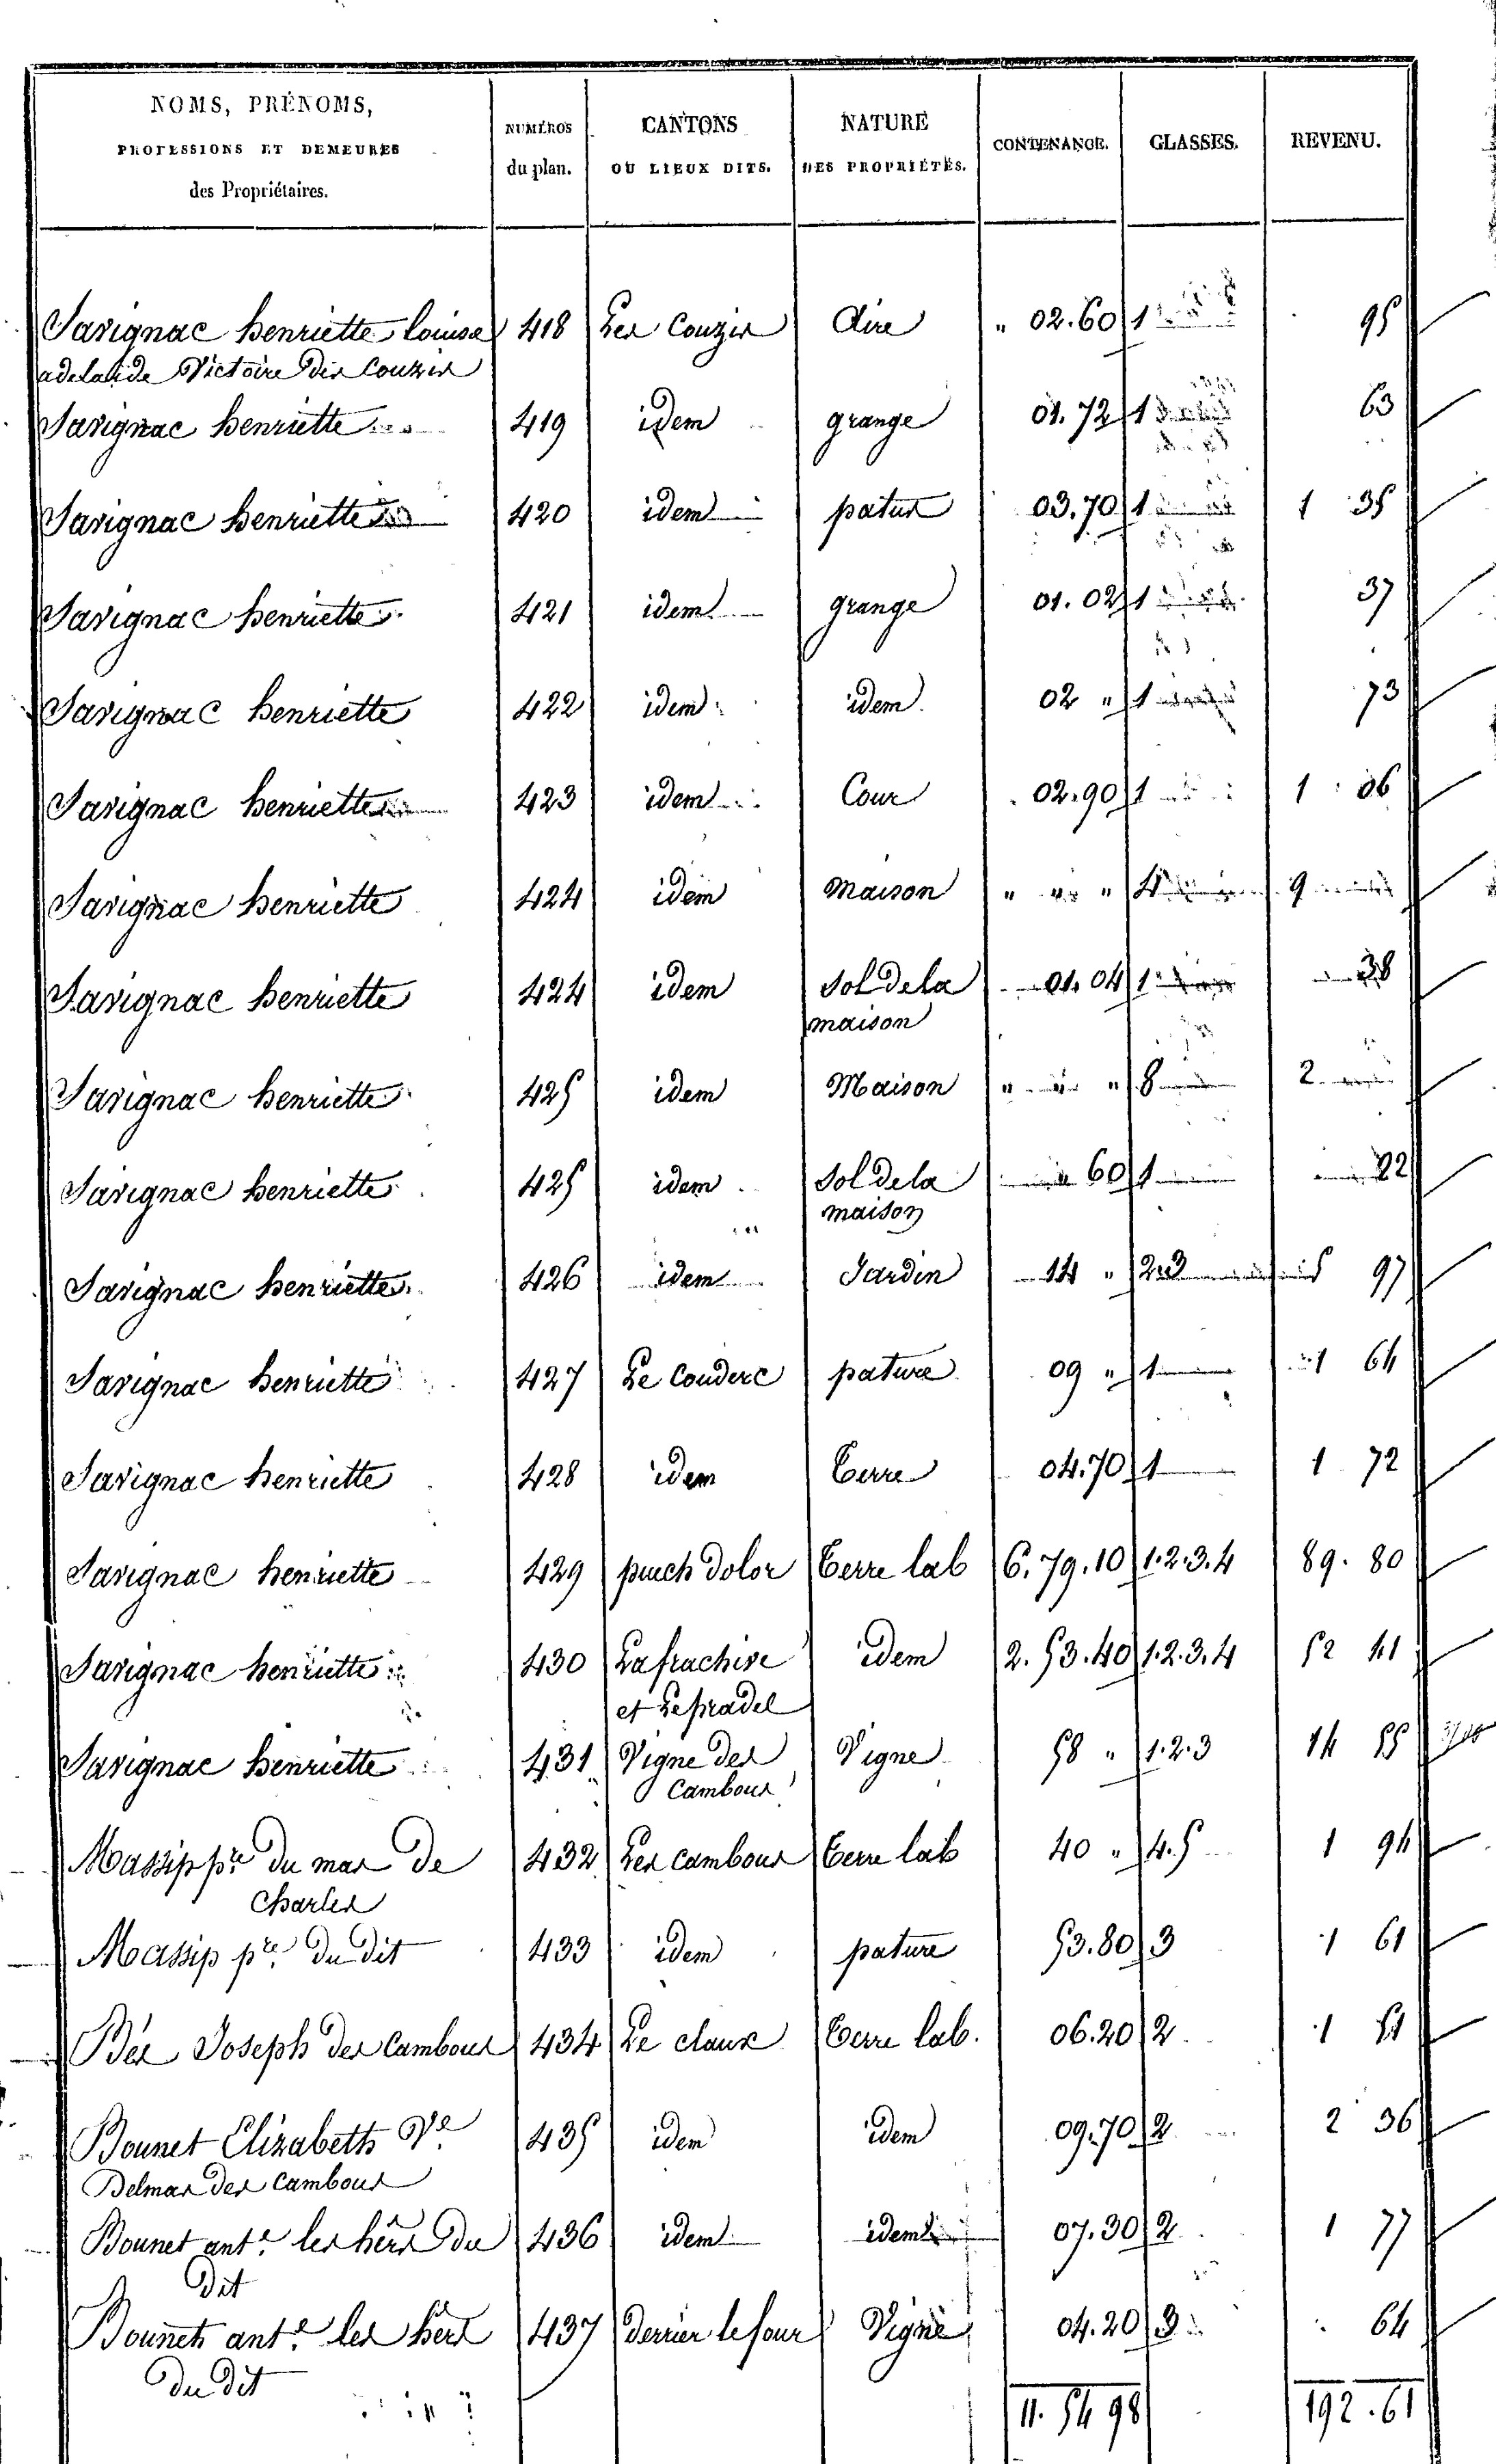 NOMS, PRÉNOMS, PROFESSIONS ET DEMEURES des Propriétaires. NUMÉROS du plan. CANTONS OU LIEUX DITS. NATURE DES PROPRIÉTÉS. CONTENANCE. CLASSES. REVENU.
Savignac henriette louise 418 Les Couzis Aire " 02.60 1 95
adelaide Victoire des Couzis
Savignac henriette 419 idem grange 01.72 1 63
Savignac henriette 420 idem patus 03.70 1 1 35
Savignac henriette 421 idem grange 01.02 1 37
Savignac henriette 422 idem idem 02 " 1 73
Savignac henriette 423 idem Cour 02.90 1 1 06
Savignac henriette 424 idem maison " " " 4 9
Savignac henriette 424 idem Sol de la 01.04 1 38
maison
Savignac henriette 425 idem Maison " " " 8 2
Savignac henriette 425 idem Sol de la " 60 1 22
maison
Savignac henriette 426 idem Jardin 14 " 2.3 5 97
Savignac henriette 427 Le Couderc pature 09 " 1 1 64
Savignac henriette 428 idem Terre 04.70 1 1 72
Savignac henriette 429 puech dolor Terre lab 6.79.10 1.2.3.4 89.80
Savignac henriette 430 Lafrachise idem 2.53.40 1.2.3.4 52 41
et Lepradel
Savignac henriette 431 Vigne des Vigne 58 " 1.2.3 14 55
Cambous
Massip pre du mas de 432 Les cambous Terre lab 40 " 4.5 1 94
Charles
Massip pre du dit 433 idem pature 53.80 3 1 61
Bés Joseph des Cambous 434 Le claux Terre lab. 06.20 2 1 51
Bounet Elizabeth Ve 435 idem idem 09.70 2 2 36
Delmas des Cambous
Bounet ante les hêrs du 436 idem idem 07.30 2 1 77
dit
Bounet ante les hers 437 derrier le four Vigne 04.20 3 64
du dit
11.54 98 192.61